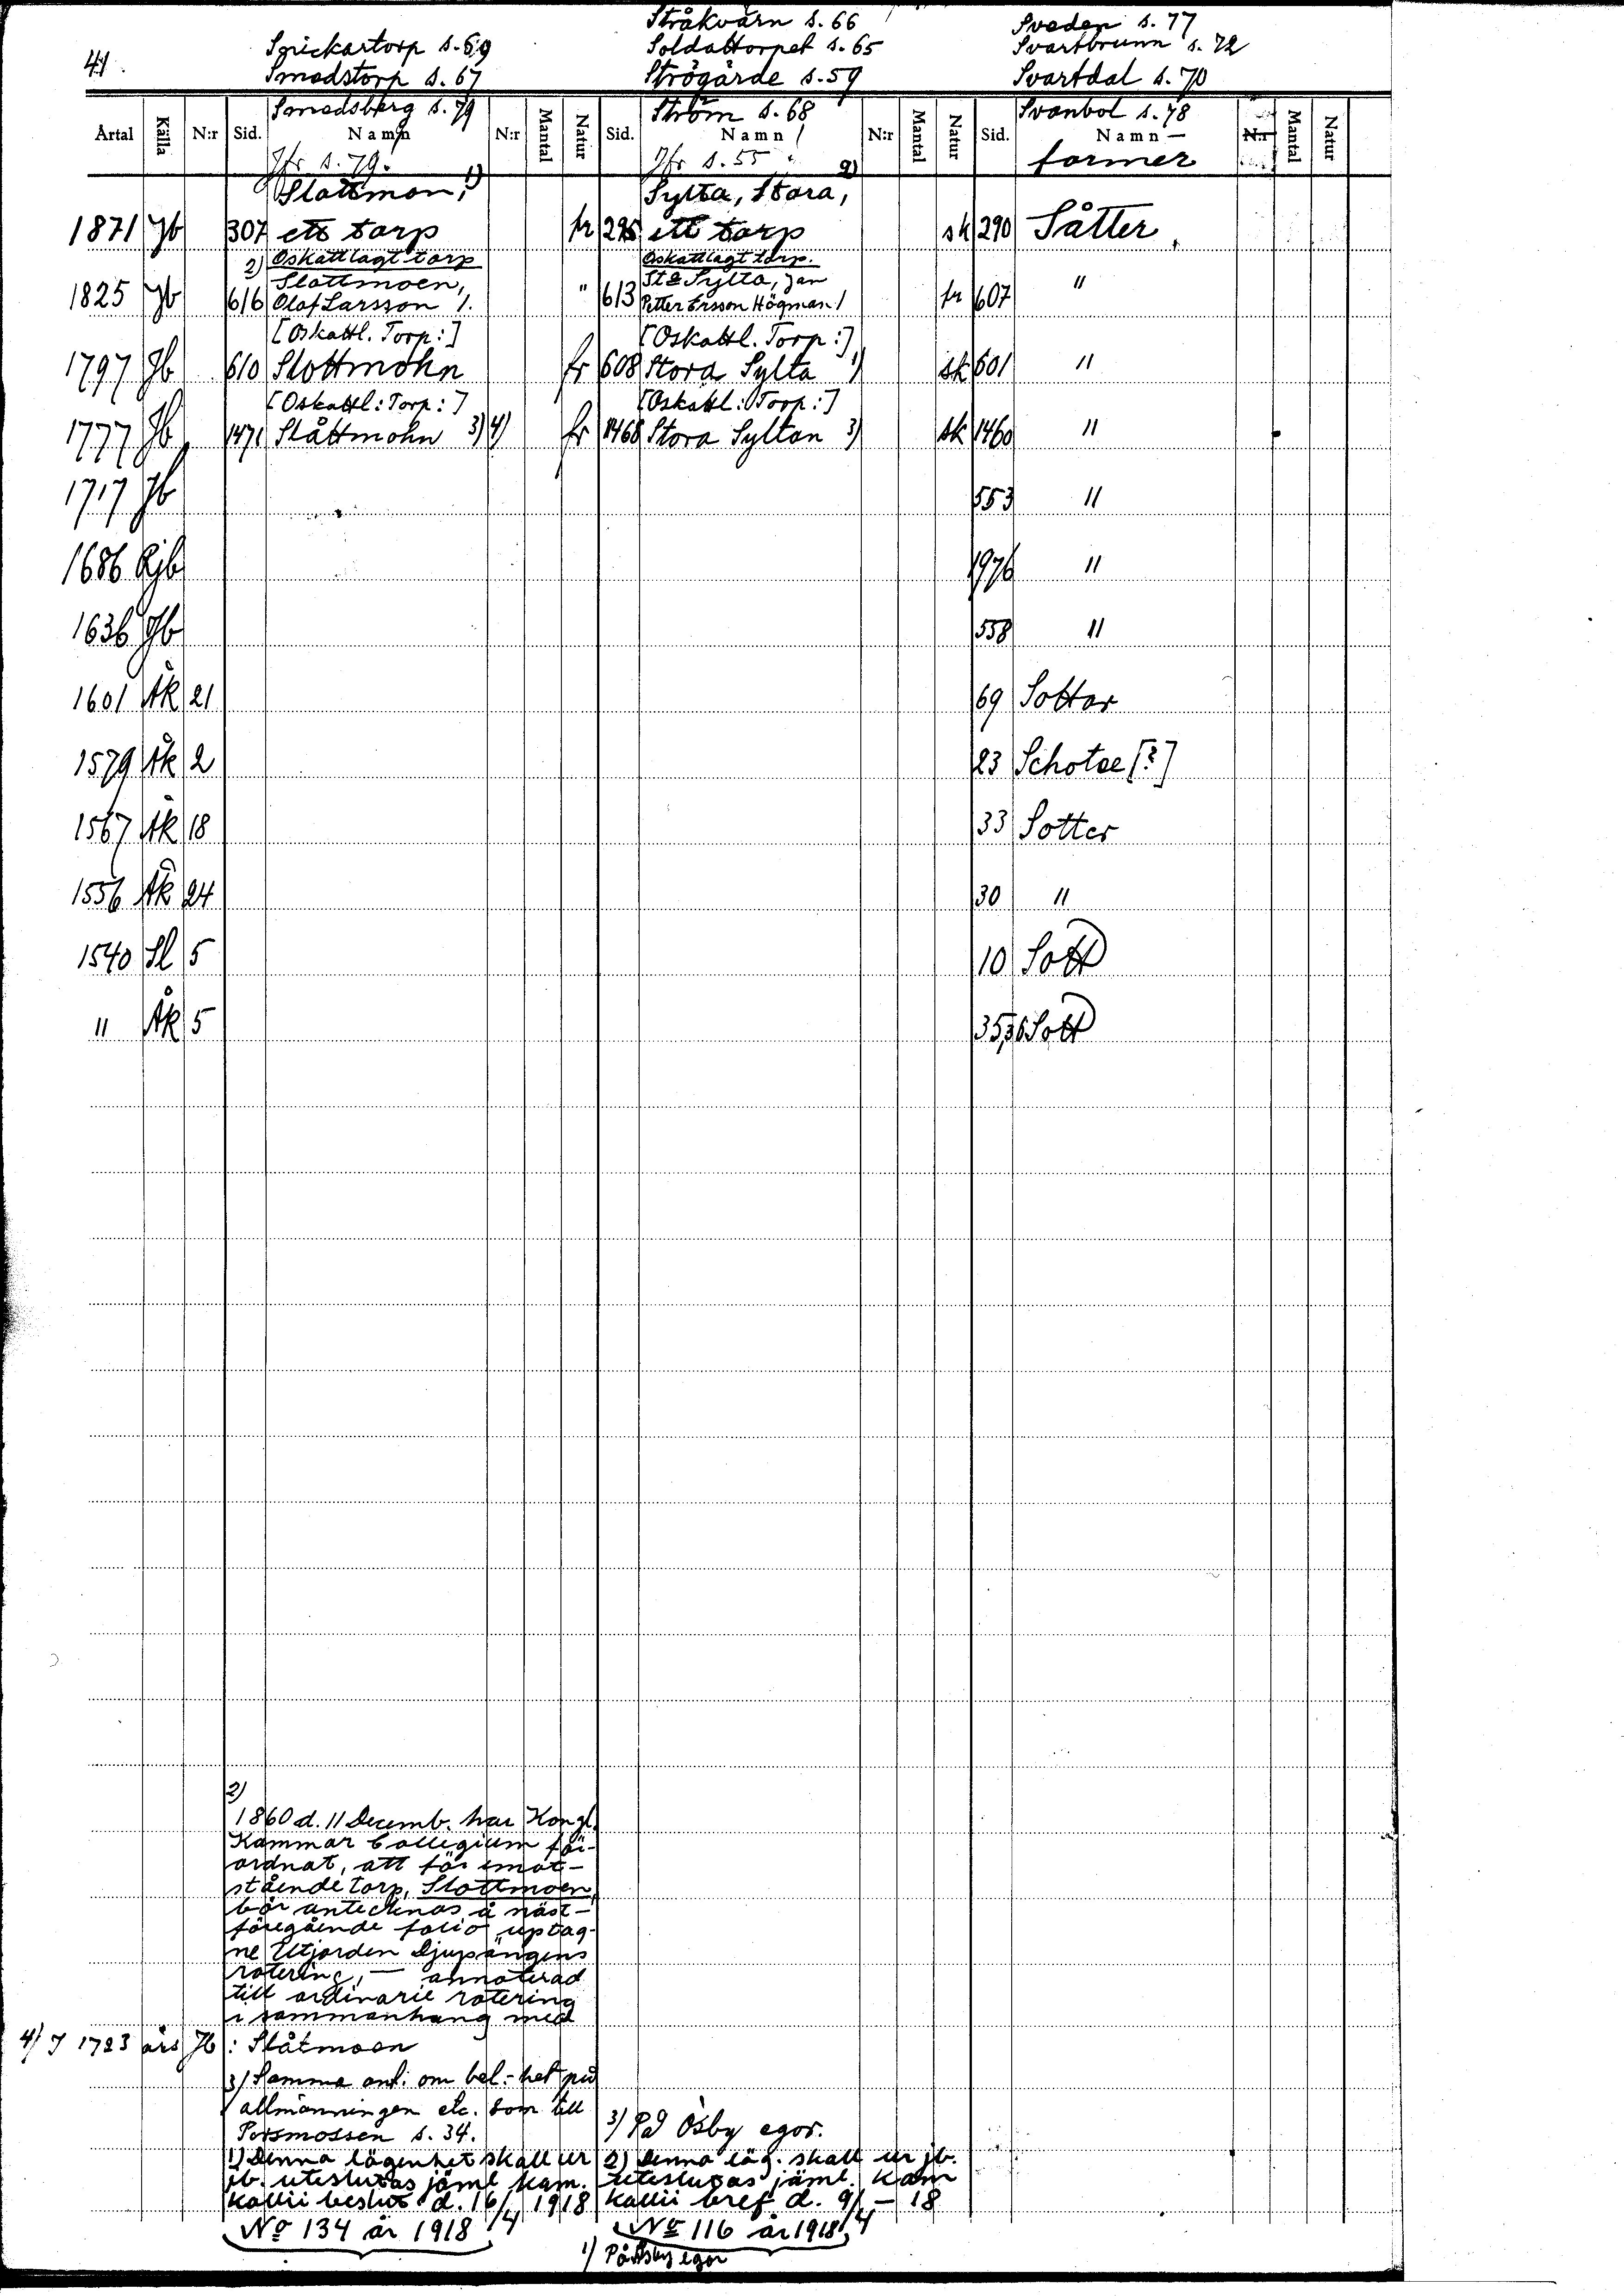 41.
Spickartorp s. 69
Smedstorp s. 67
Smedsberg s. 79
Jfr s. 79.
Stråkvarn s. 66
Soldattorpet s. 65
Strögärde s. 59
Ström s. 68
Jfr s. 55
Sveden s. 77
Svartbrunn s. 72
Svartdal s. 70
Svanbol s. 78
Årtal Källa N:r Sid. Namn N:r Mantal Natur Sid. Namn N:r Mantal Natur Sid. Namn- N:r Mantal Natur
former
Slottmon, 1) Sylta, Stora, 2)
1871 Jb 307 ett torp fr 295 ett torp sk 290 Såtter
2) Oskattlagt torp Oskattlagt torp.
Slottmoen, St:a Sylta, Jan
1825 Jb 616 Olof Larsson 1. " 613 Petter Ersson Högman 1 fr 607 "
[Oskattl. Torp:] [Oskattl. Torp:]
1797 Jb 610 Slottmohn fr 608 Stora Sylta 1) sk 601 "
[Oskattl: Torp:] [Oskattl: Torp:]
1777 Jb 1471 Slåttmohn 3) 4) fr 1468 Stora Syltan 3) sk 1460 "
1717 Jb 553 "
1686 Rjb 1976 "
1636 Jb 558 "
1601 Åk 21 69 Sottar
1579 Åk 2 23 Schotee [?]
1567 Åk 18 33 Sotter
1556 Åk 24 30 "
1540 Sl 5 10 Sott
" Åk 5 35,36 Sott
2)
1860 d. 11 Decemb. har Kongl.
Kammar Collegium för-
ordnat, att för emot-
stående torp, Slottmoen,
bör antecknas å näst-
föregående folio uptag-
ne Utjorden Djupängens
rotering, — annoterad
till ordinarie rotering
i sammanhang med
4) I 1723 års Jb: Slåtmoen
3) Samma ant: om bel.-het på
allmänningen etc. som till
Porsmossen s. 34.
1) Denna lägenhet skall ur
jb. uteslutas jäml. kam.
kollii beslut d. 16/4 1918
No 134 år 1918
3) På Ösby egor.
2) Denna läg. skall ur jb.
uteslutas jäml. kam
kollii bref d. 9/4 - 18
No 116 år 1918
1) På Åsby egor